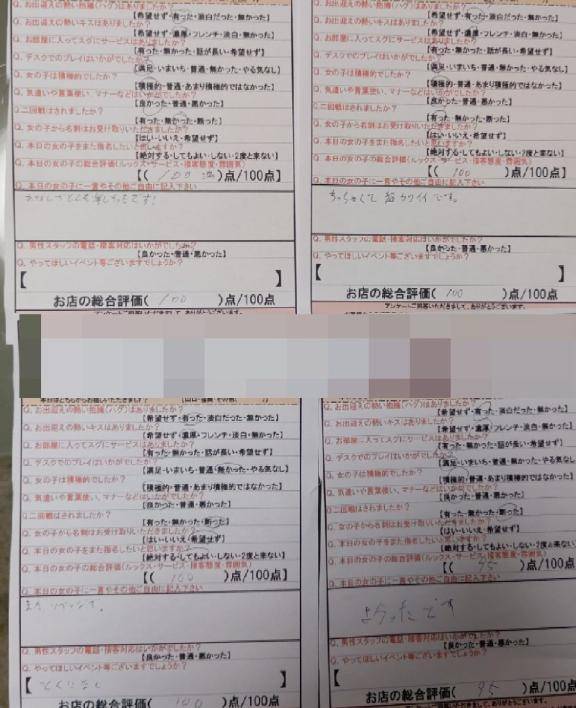 Q. お出迎えの熱い抱擁(ハグ)はありましたか?
【希望せず・有った・淡白だった・無かった】
Q. お出迎えの熱いキスはありましたか?
【希望せず・濃厚・フレンチ・淡白・無かった】
Q. お部屋に入ってスグにサービスはありましたか?
【有った・無かった・話が長い・希望せず】
Q. デスクでのプレイはいかがでしたか?
【満足・いまいち・普通・無かった・やる気なし】
Q. 女の子は積極的でしたか?
【積極的・普通・あまり積極的ではなかった】
Q. 気遣いや言葉使い、マナーなどはいかがでしたか?
【良かった・普通・悪かった】
Q. 二回戦はされましたか?
【有った・無かった・断った】
Q. 女の子から名刺はお受け取りいただきましたか?
【はい・いいえ・希望せず】
Q. 本日の女の子をまた指名したいと思いますか?
【絶対する・してもよい・しない・2度と来ない】
Q. 本日の女の子の総合評価(ルックス・サービス・接客態度・雰囲気)
【( 100 )点/100点】
Q. 本日の女の子に一言やその他ご自由に記入下さい
Q. 男性スタッフの電話・接客対応はいかがでしたか?
【良かった・普通・悪かった】
Q. やってほしいイベント等ございますでしょうか?
【 】
お店の総合評価( 100 )点/100点
アンケートご回答いただきまして、ありがとうございます。
Q. お出迎えの熱い抱擁(ハグ)はありましたか?
【希望せず・有った・淡白だった・無かった】
Q. お出迎えの熱いキスはありましたか?
【希望せず・濃厚・フレンチ・淡白・無かった】
Q. お部屋に入ってスグにサービスはありましたか?
【有った・無かった・話が長い・希望せず】
Q. デスクでのプレイはいかがでしたか?
【満足・いまいち・普通・無かった・やる気なし
Q. 女の子は積極的でしたか?
【積極的・普通・あまり積極的ではなかった】
Q. 気遣いや言葉使い、マナーなどはいかがでしたか?
【良かった・普通・悪かった】
Q. 二回戦はされましたか?
【有った・無かった・断った】
Q. 女の子から名刺はお受け取りいただきましたか?
【はい・いいえ・希望せず】
Q. 本日の女の子をまた指名したいと思いますか?
【絶対する・してもよい・しない・2度と来ない】
Q. 本日の女の子の総合評価(ルックス・サービス・接客態度・雰囲気)
【( 100 )点/100点】
Q. 本日の女の子に一言やその他ご自由に記入下さい
ちっちゃくて カワイイです。
Q. 男性スタッフの電話・接客対応はいかがでしたか?
【良かった・普通・悪かった】
Q. やってほしいイベント等ございますでしょうか?
【 】
お店の総合評価( 100 )点/100点
アンケートご回答いただきまして、ありがとうございます。
Q. お出迎えの熱い抱擁(ハグ)はありましたか?
【希望せず・有った・淡白だった・無かった】
Q. お出迎えの熱いキスはありましたか?
【希望せず・濃厚・フレンチ・淡白・無かった】
Q. お部屋に入ってスグにサービスはありましたか?
【有った・無かった・話が長い・希望せず】
Q. デスクでのプレイはいかがでしたか?
【満足・いまいち・普通・無かった・やる気なし】
Q. 女の子は積極的でしたか?
【積極的・普通・あまり積極的ではなかった】
Q. 気遣いや言葉使い、マナーなどはいかがでしたか?
【良かった・普通・悪かった】
Q. 二回戦はされましたか?
【有った・無かった・断った】
Q. 女の子から名刺はお受け取りいただきましたか?
【はい・いいえ・希望せず】
Q. 本日の女の子をまた指名したいと思いますか?
【絶対する・してもよい・しない・2度と来ない】
Q. 本日の女の子の総合評価(ルックス・サービス・接客態度・雰囲気)
【( 100 )点/100点】
Q. 本日の女の子に一言やその他ご自由に記入下さい
Q. 男性スタッフの電話・接客対応はいかがでしたか?
【良かった・普通・悪かった】
Q. やってほしいイベント等ございますでしょうか?
【 とくになし 】
お店の総合評価( 100 )点/100点
Q. お出迎えの熱い抱擁(ハグ)はありましたか?
【希望せず・有った・淡白だった・無かった】
Q. お出迎えの熱いキスはありましたか?
【希望せず・濃厚・フレンチ・淡白・無かった】
Q. お部屋に入ってスグにサービスはありましたか?
【有った・無かった・話が長い・希望せず】
Q. デスクでのプレイはいかがでしたか?
【満足・いまいち・普通・無かった・やる気なし
Q. 女の子は積極的でしたか?
【積極的・普通・あまり積極的ではなかった】
Q. 気遣いや言葉使い、マナーなどはいかがでしたか?
【良かった・普通・悪かった】
Q. 二回戦はされましたか?
【有った・無かった・断った】
Q. 女の子から名刺はお受け取りいただきましたか?
【はい・いいえ・希望せず】
Q. 本日の女の子をまた指名したいと思いますか?
【絶対する・してもよい・しない・2度と来ない】
Q. 本日の女の子の総合評価(ルックス・サービス・接客態度・雰囲気)
【( 95 )点/100点】
Q. 本日の女の子に一言やその他ご自由に記入下さい
よかったです
Q. 男性スタッフの電話・接客対応はいかがでしたか?
【良かった・普通・悪かった】
Q. やってほしいイベント等ございますでしょうか?
【
お店の総合評価( 95 )点/100点